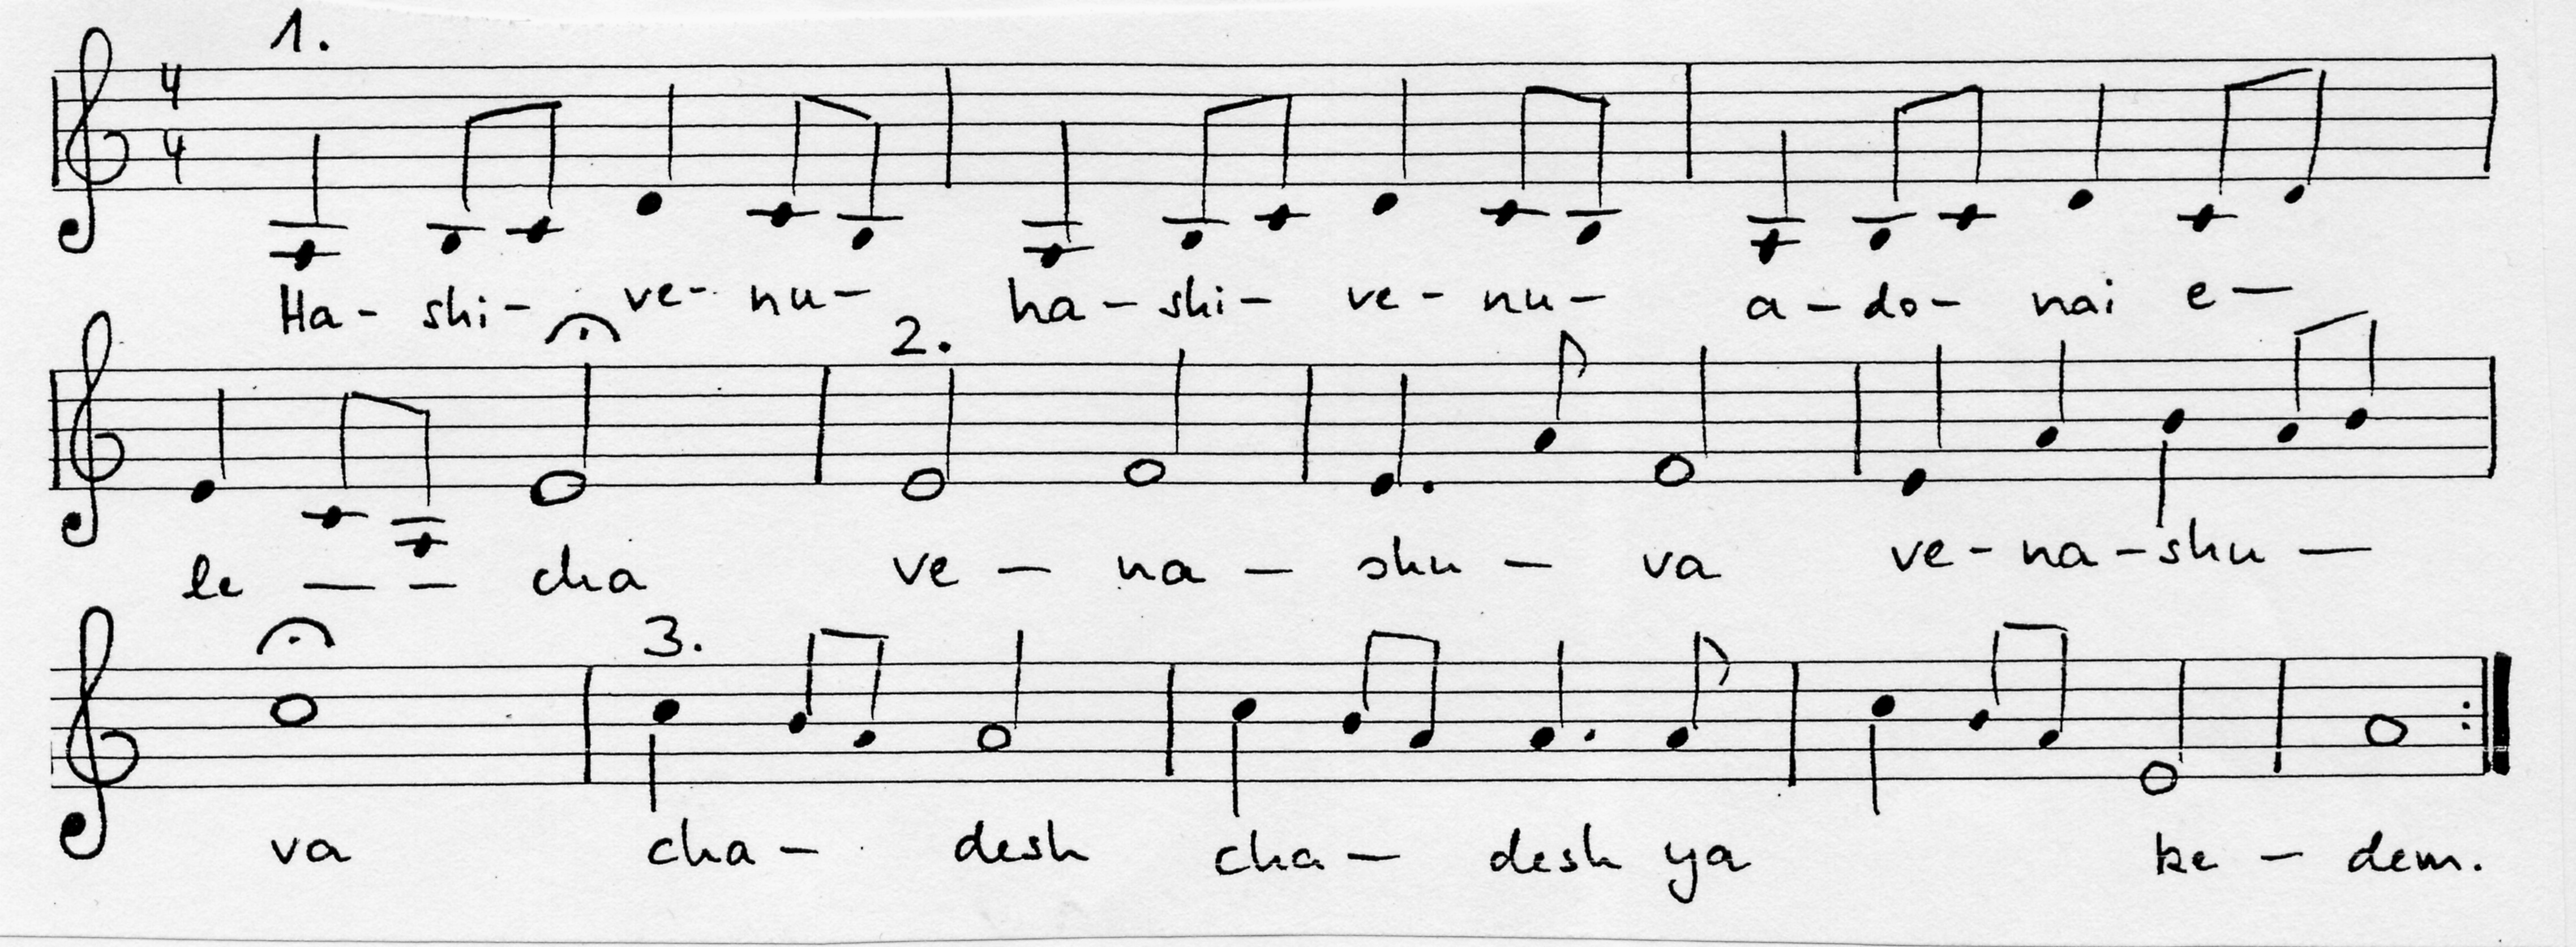 1.
4
4
Ha - shi - ve - nu - ha - shi - ve - nu - a - do - nai e —
2.
le — - cha ve - na - shu - va ve - na - shu —
3.
va cha - desh cha - desh ya ke - dem.